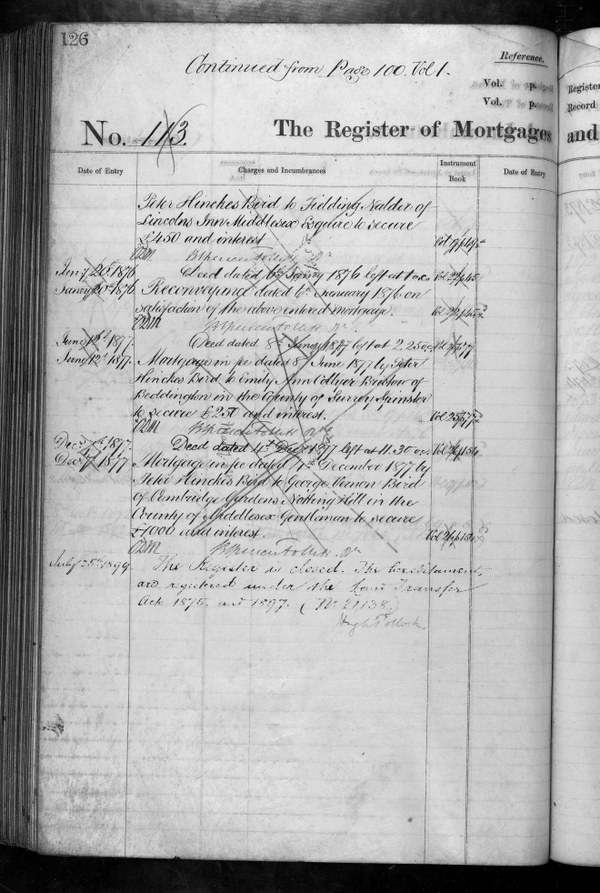 126
Continued from Page 100. Vol 1.
Reference.
Vol. p.
Vol. p.
No. 113.
The Register of Mortgages
and
Register
Record
Date of Entry
Charges and Incumbrances
Instrument Book
Date of Entry
Peter Hinckes Bird to Fielding Nalder of
Lincolns Inn Middlesex Esquire to secure
£450 and interest
Jany 20th 1876 Deed dated 6th Jany 1876 left at 1
Jany 20th 1876 Reconveyance dated 6th January 1876 on
satisfaction of the above entered mortgage.
June 12th 1877. Deed dated 8th 1877 left at 2.25
June 12th 1877. Mortgage in fee dated 8th June 1877 by Peter
Hinckes Bird to Emily Ann Collyer Bristow of
Beddington in the County of Surrey Spinster
to secure £250 and interest.
Decr 1877. Deed dated 4th Decr 1877 left at 11.30
Decr 1877 Mortgage in fee dated 4th December 1877 by
Peter Hinckes Bird to George Vernon Bird
of Cambridge Gardens Notting Hill in the
County of Middlesex Gentleman to secure
£1000 and interest.
July 25th 1899 The Register is closed. The hereditaments
are registered under the Land Transfer
Acts 1875 and 1897. (No. 21138)
Hugh Pollock